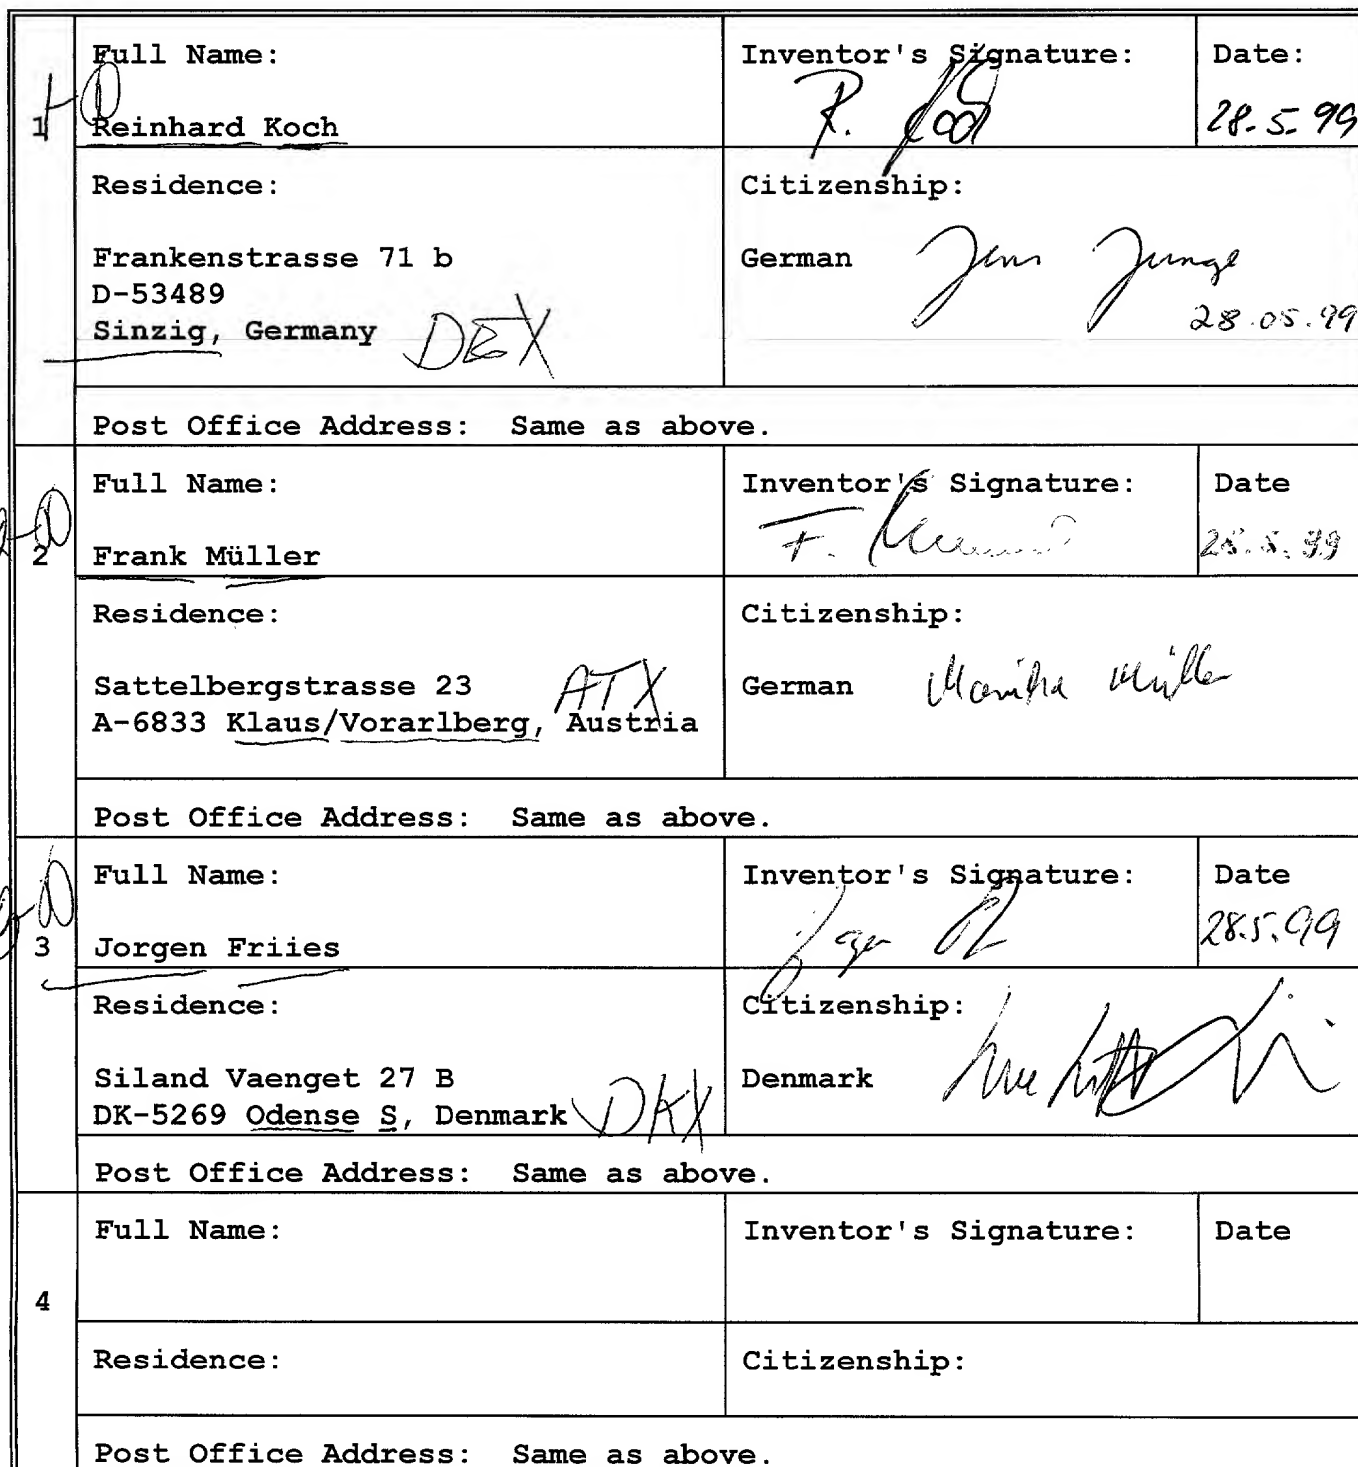 Full Name:
Reinhard Koch
Inventor's Signature:
R. Koch
Date:
28.5.99
1
Residence:
Frankenstrasse 71 b
D-53489
Sinzig, Germany DEX
Citizenship:
German Jens Junge
28.05.99
Post Office Address: Same as above.
2
Full Name:
Frank Müller
Inventor's Signature:
F.
Date
28.5.99
Residence:
Sattelbergstrasse 23 ATX
A-6833 Klaus/Vorarlberg, Austria
Citizenship:
German Monika Müller
Post Office Address: Same as above.
3
Full Name:
Jorgen Friies
Inventor's Signature:
Date
28.5.99
Residence:
Siland Vaenget 27 B
DK-5269 Odense S, Denmark DKX
Citizenship:
Denmark
Post Office Address: Same as above.
4
Full Name:
Inventor's Signature:
Date
Residence:
Citizenship:
Post Office Address: Same as above.